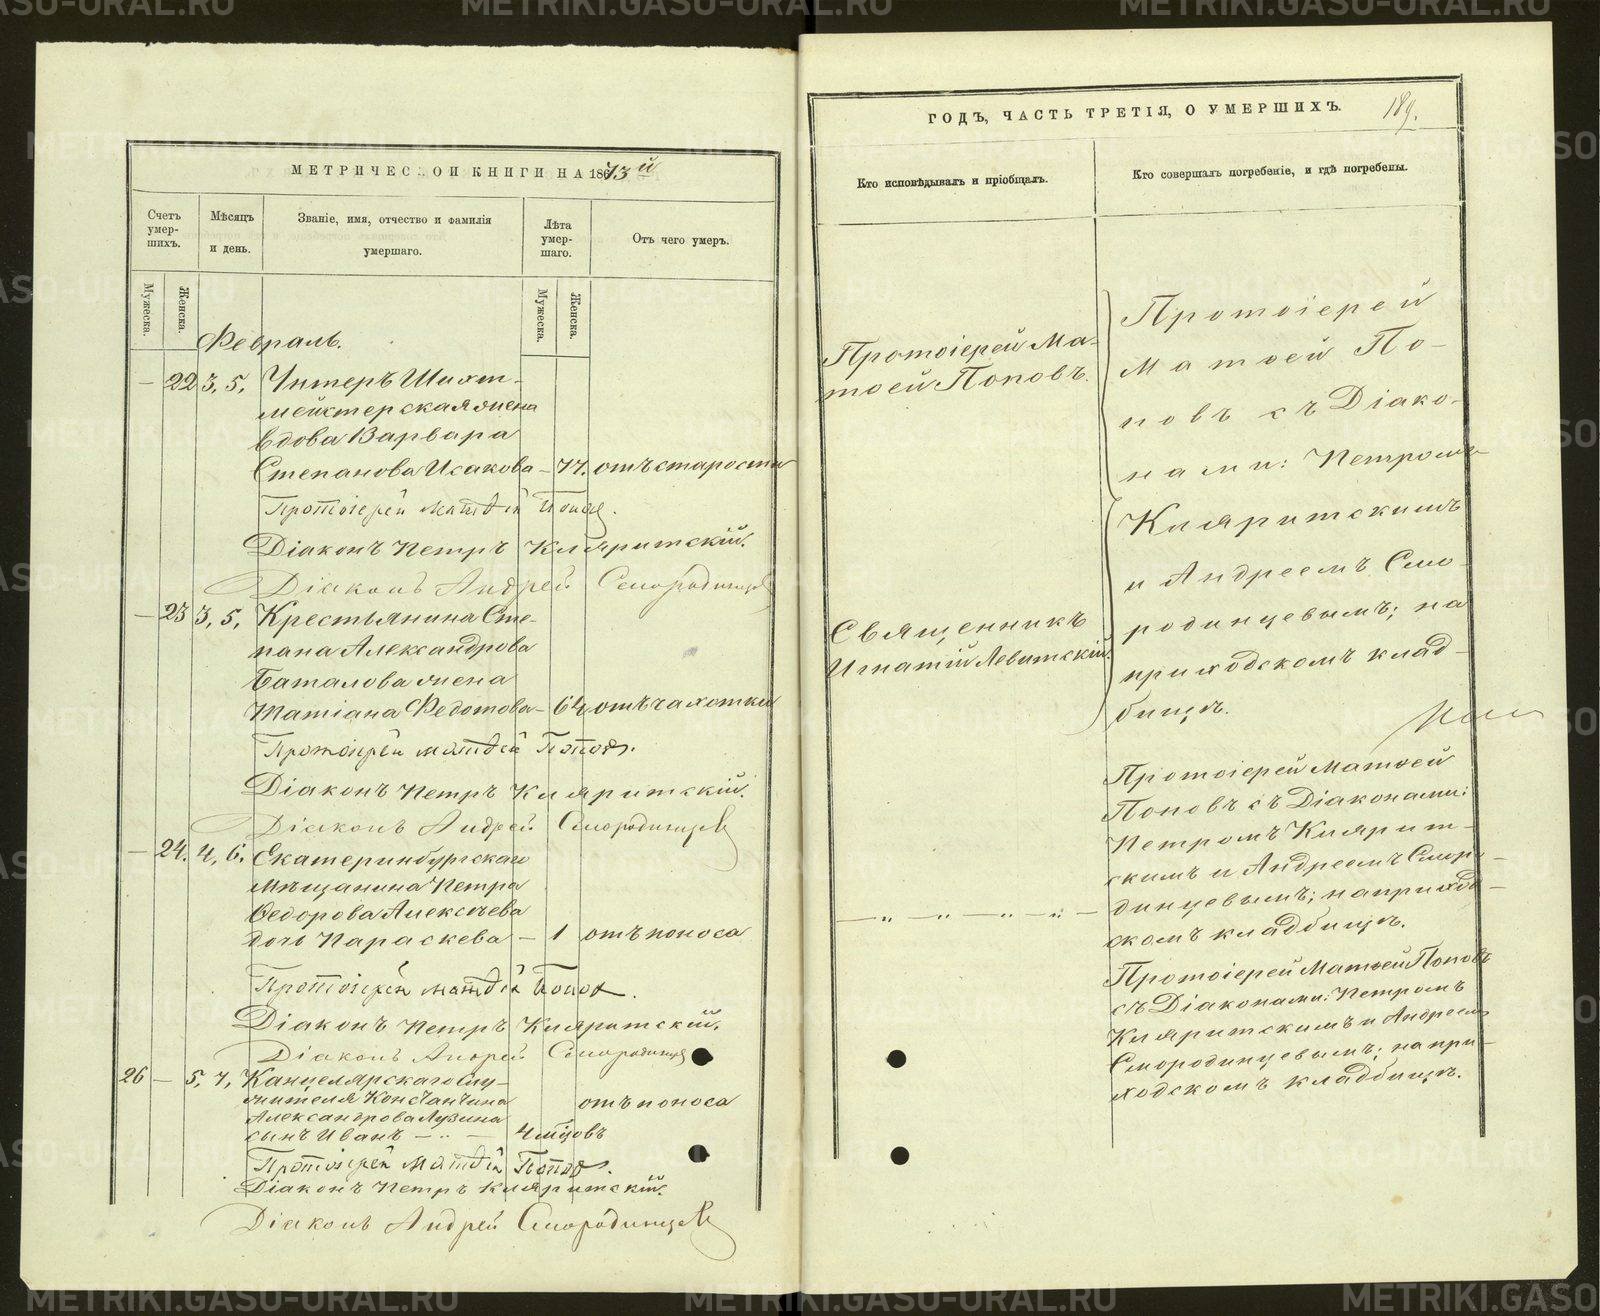 МЕТРИЧЕСКОЙ КНИГИ НА 1873й
Счетъ умер-шихъ.
Мѣсяцъ и день.
Званіе, имя, отчество и фамилія умершаго.
Лѣта умер-шаго.
Отъ чего умеръ.
Мужеска.
Женска.
Мужеска.
Женска.
Февраль.
— 22 3, 5, Унтеръ Шихт-
мейстерская жена
вдова Варвара
Степанова Исакова — 77. отъ старости
Протоіерей Матѳей Поповъ.
Діаконъ Петръ Кляритскій.
Діаконъ Андрей Смородинцевъ
— 23 3, 5, Крестьянина Сте-
пана Александрова
Баталова жена
Татіана Федотова — 64 отъ чахотки
Протоіерей Матѳей Поповъ.
Діаконъ Петръ Кляритскій.
Діаконъ Андрей Смородинцевъ
— 24. 4, 6. Екатеринбургскаго
Мѣщанина Петра
Ѳедорова Алексѣева
дочь Параскева — 1 отъ поноса
Протоіерей Матѳей Поповъ.
Діаконъ Петръ Кляритскій.
Діаконъ Андрей Смородинцевъ
26 — 5, 7, Канцелярскаго Слу-
жителя Константина
Александрова Лузина отъ поноса
сынъ Иванъ — „ — 4 мѣсцовъ
Протоіерей Матѳей Поповъ.
Діаконъ Петръ Кляритскій.
Діаконъ Андрей Смородинцевъ
ГОДЪ, ЧАСТЬ ТРЕТІЯ, О УМЕРШИХЪ.
189.
Кто исповѣдывалъ и пріобщалъ.
Кто совершалъ погребеніе, и гдѣ погребены.
Протоіерей Ма-
тѳей Поповъ.
Протоіерей
Матѳей По-
повъ съ Діако-
нами: Петромъ
Кляритскимъ
и Андреемъ Смо-
родинцевымъ; на
приходскомъ клад-
бищѣ.
Священникъ
Игнатій Левитскій.
Протоіерей Матѳей
Поповъ съ Діаконами:
Петромъ Кклярит-
скимъ и Андреемъ Сморо-
динцевымъ; на приход-
скомъ кладбищѣ.
— „ — „ — „ —
Протоіерей Матѳей Поповъ
съ Діаконами: Петромъ
Кляритскимъ и Андреемъ
Смородинцевымъ; на при-
ходскомъ кладбищѣ.
METRIKI.GASO-URAL.RU